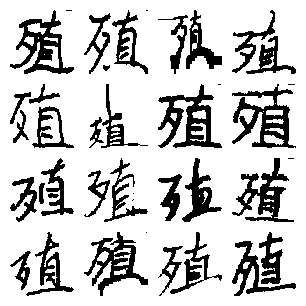 殖殖殖殖
殖殖殖殖
殖殖殖殖
殖殖殖殖